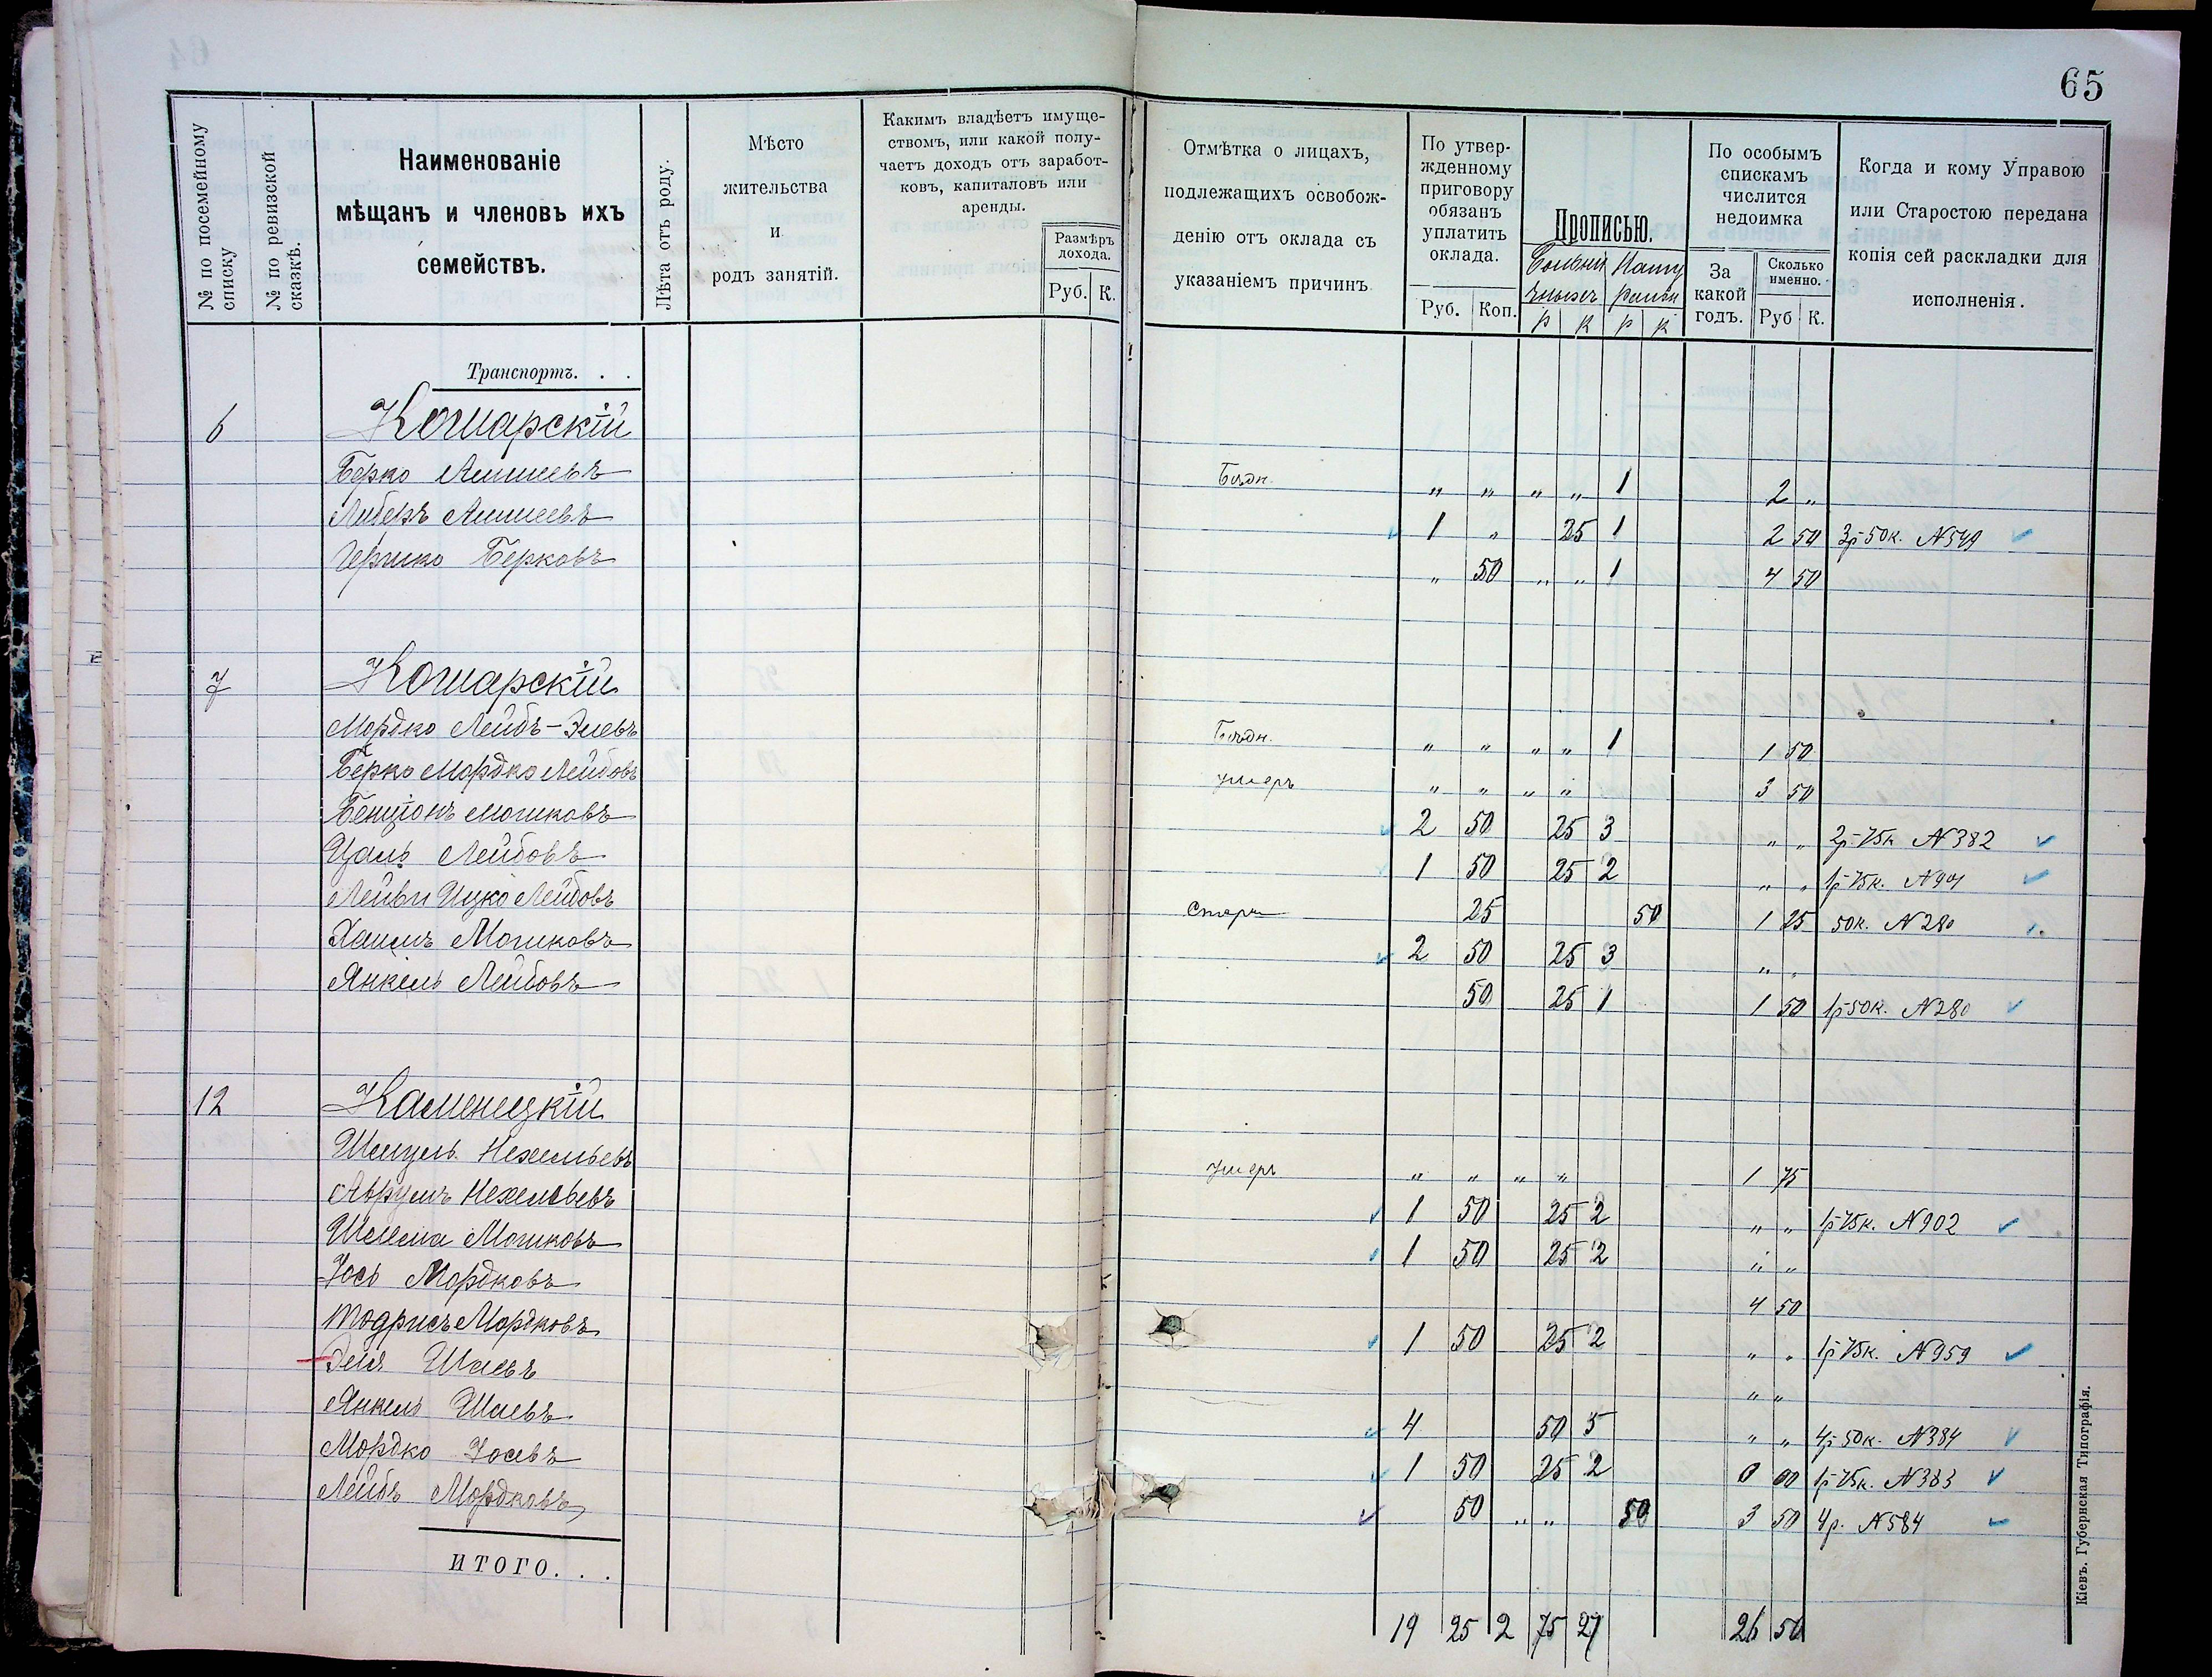 65
№ по посемейному списку
№ по ревизской сказкѣ.
Наименованіе
мѣщанъ и членовъ ихъ
семействъ.
Лѣта отъ роду.
Мѣсто
жительства
и
родъ занятій.
Какимъ владѣетъ имуще-
ствомъ, или какой полу-
чаетъ доходъ отъ заработ-
ковъ, капиталовъ или
аренды.
Размѣръ
дохода.
Руб. К.
Отмѣтка о лицахъ,
подлежащихъ освобож-
денію отъ оклада съ
указаніемъ причинъ
По утвер-
жденному
приговору
обязанъ
уплатить
оклада.
Руб. Коп.
Прописью.
р к р к
По особымъ
спискамъ
числится
недоимка
За
какой
годъ.
Сколько
именно.
Руб К.
Когда и кому Управою
или Старостою передана
копія сей раскладки для
исполненія.
Транспортъ. . .
6 Кошарскій
Берко Бѣдн. „ „ „ „ 1 2 „
Либеръ 1 „ 25 1 2 50 3р 50к. N 549
Гершко Берковъ „ 50 „ „ 1 4 50
7 Кошарскій
Мордко Лейбъ-Элевъ Бѣдн. „ „ „ „ 1 1 50
Берко Мордко Лейбовъ умеръ „ „ „ „ 3 50
Бенціонъ Мошковъ 2 50 25 3 „ „ 2р 75к N 382
Цаль Лейбовъ 1 50 25 2 „ „ 1р 75к.
Ицко Лейбовъ 25 50 1 25 50к. N 280
Хаимъ Мошковъ 2 50 25 3 „ „
Янкель Лейбовъ 50 25 1 1 50 1р 50к. N 280
12 Каменецкій
Шмуль Нехемьевъ умеръ „ „ „ „ 1 75
Аврумъ Нехемьевъ 1 50 25 2 „ „ 1р 75к. N 902
Мошковъ 1 50 25 2 „ „
Іось Мордковъ 4 50
Тодрисъ Мордковъ 1 50 25 2 „ „ 1р 75к. N 959
Эля Шаевъ „ „
Янкель Шаевъ 4 50 5 „ „ 4р 50к. N 384
Мордко Іосевъ 1 50 25 2 0 00 1р 75к. N 383
Лейбъ Мордковъ 50 „ „ 50 3 50 4р. N 584
ИТОГО. . .
19 25 2 75 27 26 50
Кіевъ. Губернская Типографія.